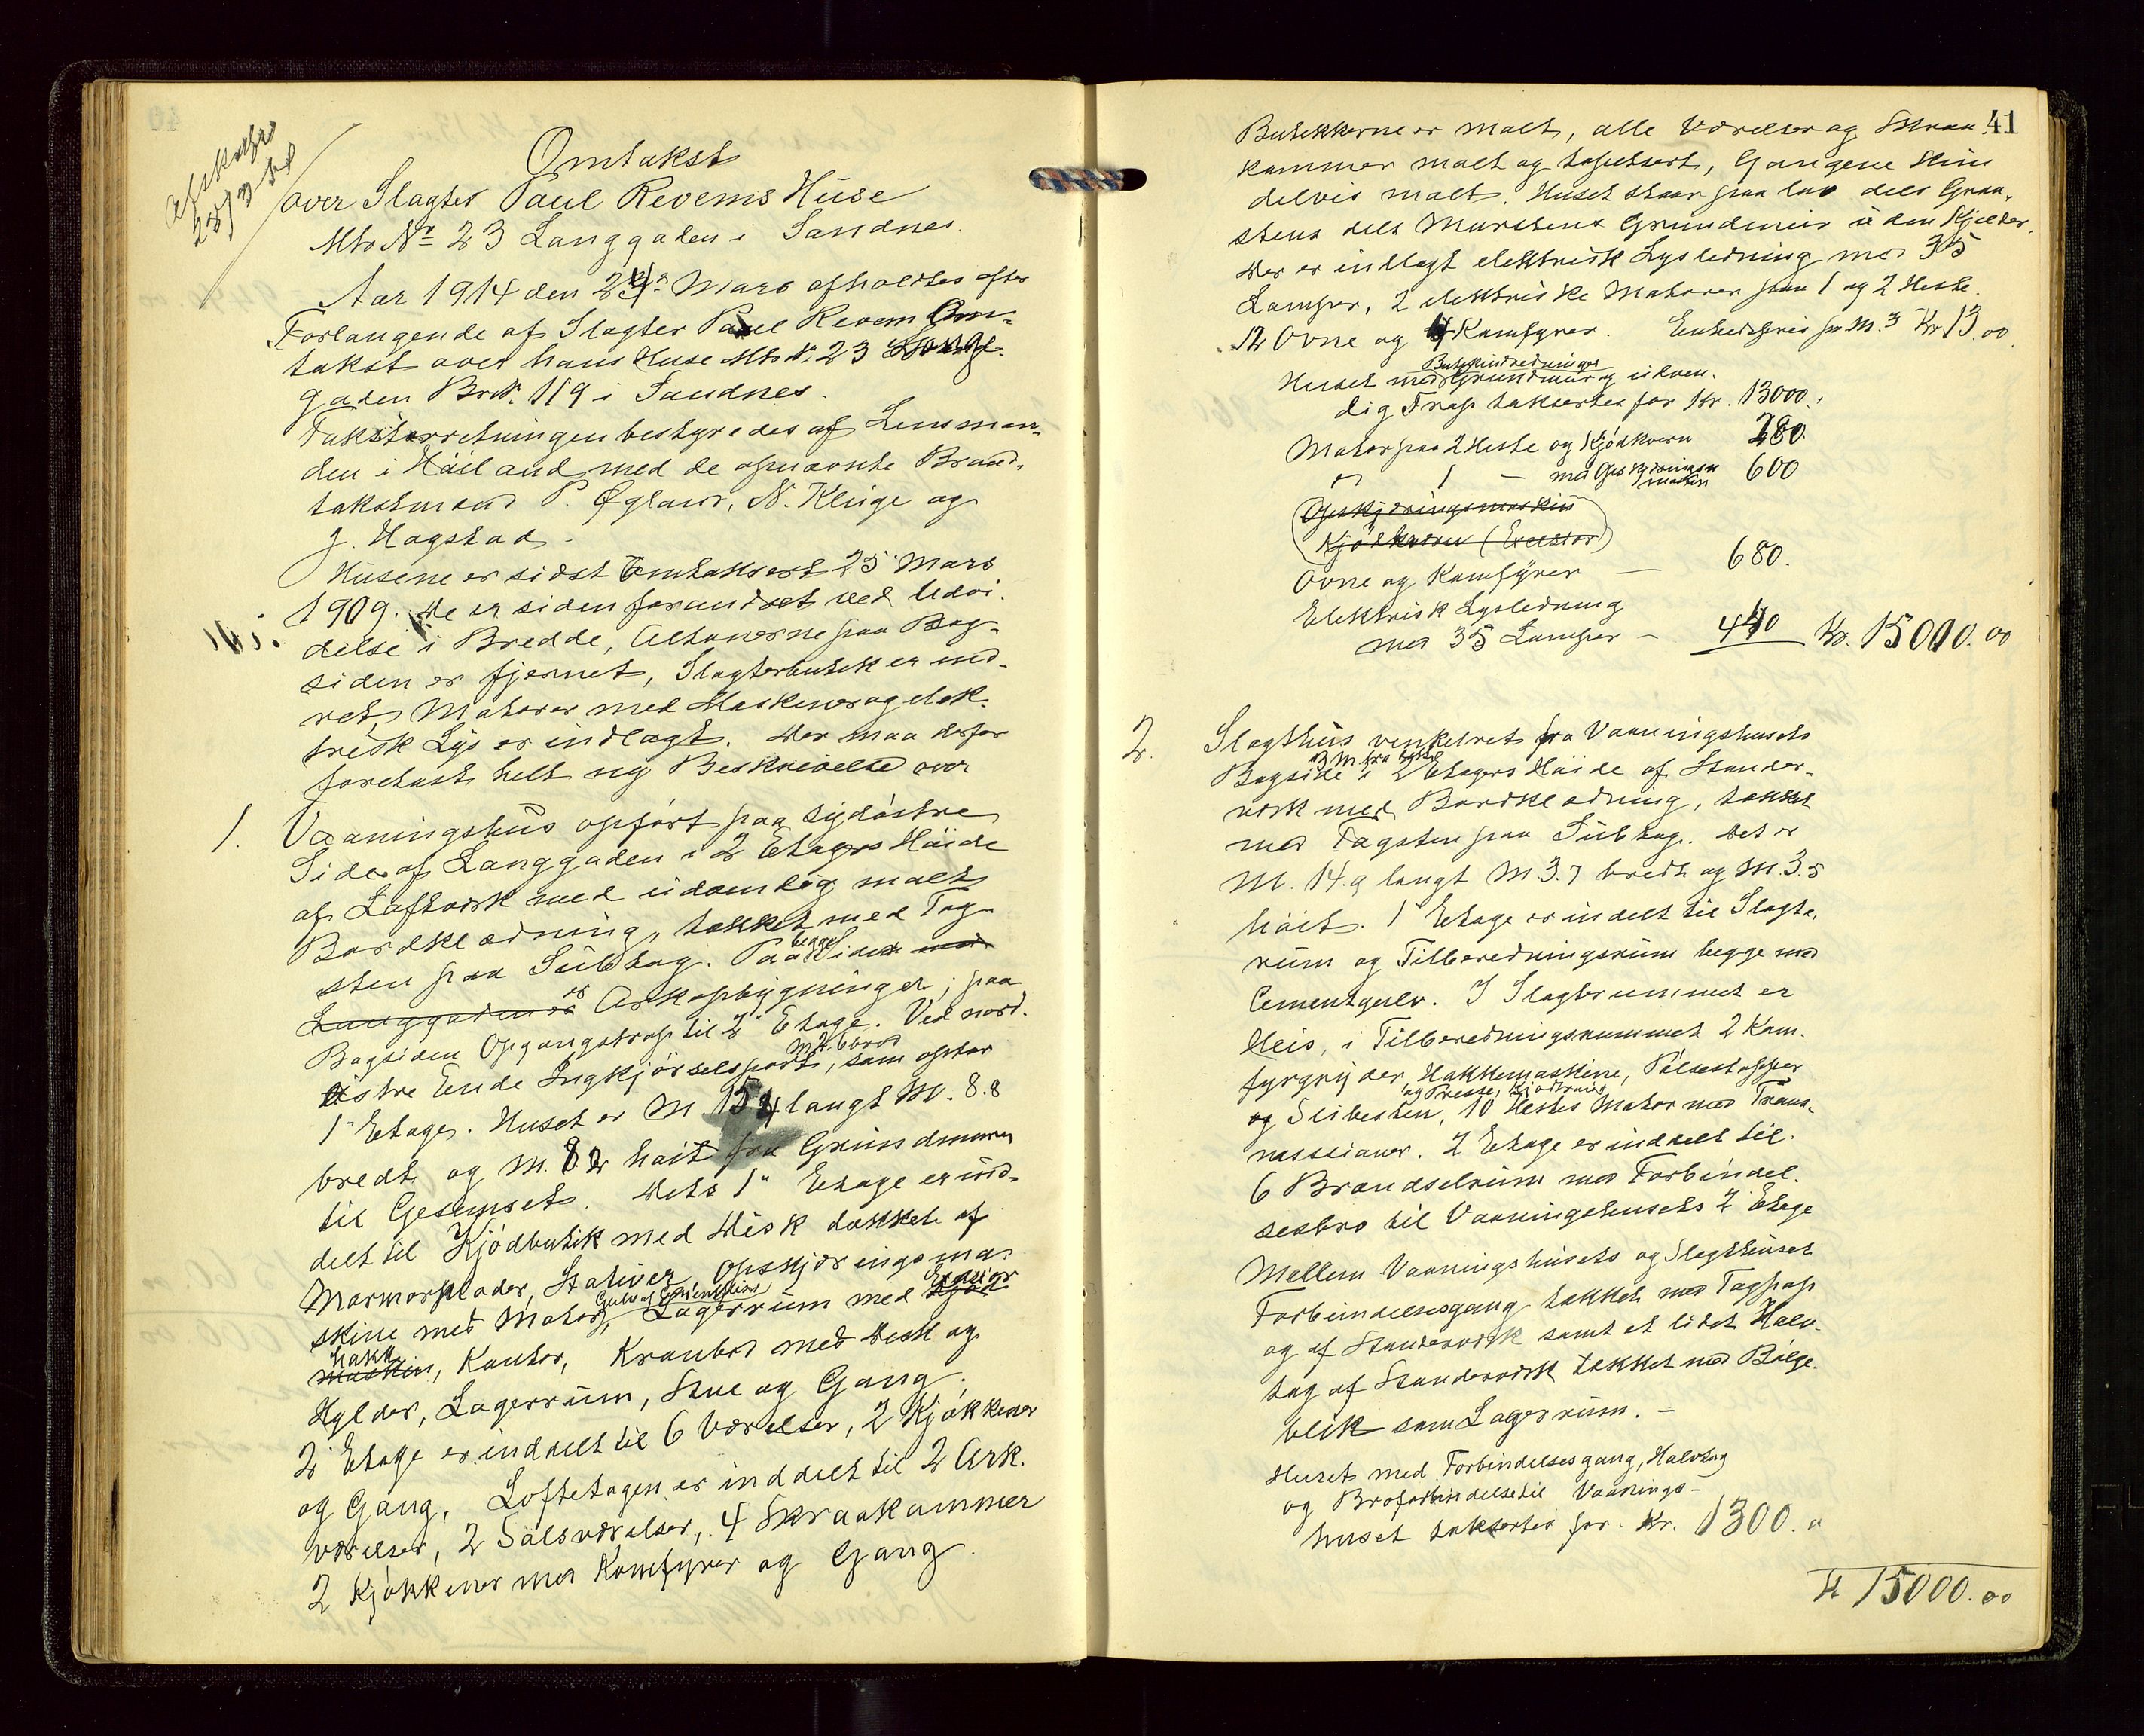 Afskrevet
28/3-14
Omtakst
over Slagter Paul Revems Huse
Mtr Nr 23 Langgaden i Sandnes.
Aar 1914 den 24de Mars afholdtes efter
Forlangende af Slagter Paul Revem Om-
takst over hans Huse Mtr. Nr. 23 Lang-
gaden Br.Nr. 119 i Sandnes.
Takstforretningen bestyredes af Lensman-
den i Høiland med de opnævnte Brand-
takstmænd P. Øgland, N. Kluge og
J. Hagstad.
Husene er sidst omtaksert 25 Mars
1909. De er siden forandret ved Udvi-
delse i Bredde, Altanerne paa Bag-
siden er fjernet, Slagterbutik er ind-
ret, Motorer med Maskiner og elek-
trisk Lys er indlagt. Der maa derfor
foretast helt ny Beskrivelse over
1. Vaaningshus opført paa sydøstre
Side af Langgaden i 2 Etagers Høide
af Laftverk med udvendig malt
Bordklædning, tækket med Tag-
sten paa Subtag. Paa begge Sider med
Langgaden er er Arkopbygninger; paa
Bagsiden Opgangstrap til 2 Etage. Ved nord-
østre Ende Indkjørselsport M 2.6 bred, som optar
1 Etage. Huset er M. 15.4 langt M. 8.8
bredt og M. 8.2 høit fra Grundmuren
til Gesimset. Dets 1ste Etage er ind-
delt til Kjødbutik med Disk dækket af
Marmorplader, Stativer, Opskjæringsma-
skine med Motor, Gulv af Cementfliser, Lagerrum med Excelsior Kjød
hakk maskin, Kontor, Krambod med Disk og
Hylder, Lagerrum, Stue og Gang.
2 Etage er inddelt til 6 Værelser, 2 Kjøkkener
og Gang. Loftetagen er inddelt til 2 Ark-
værelser, 2 Salsværelser, 4 Skraakammer
2 Kjøkkener med Komfyrer og Gang.
41
Butikkerne er malt, alle Værelser og Skraa-
kammer malt og tapetsert, Gangene kun
delvis malt. Huset staar paa lav dels Graa-
stens dels Murstens Grundmur uden Kjelder.
Der er indlagt elektrisk Lysledning med 35
Lamper, 2 elektriske Motorer paa 1 og 2 Heste.
12 Ovne og 4 Komfyrer. Enhedspris pr M.3 Kr 13.00
Butikindredninger
Huset med Grundmur og udven-
dig Trap takseres for Kr. 13000.
Motor paa 2 Heste og Kjødkvern 280.
" 1 — med Opskjæringsmaskin 600
Opskjæringsmaskin
Kjødkvern (Excelsior)
Ovne og Komfyrer — 680.
Elektrisk Lysledning
med 35 Lamper — 440 Kr. 15000.00
2. Slagthus vinkelret fra Vaaningshusets
Bagside i 2 Etagers Høide af Stender-
verk med Bordklædning, tækket
med Tagsten paa Subtag. Det er
M. 14.9 langt M 3.7 bredt og M. 3.5
høit. 1 Etage er indelt til Slagte-
rum og Tilberedningsrum begge med
Cementgulv. I Slagterummet er
Heis, i Tilberedningsrummet 2 Kom-
fyrgryder, Hakkemaskine, Pølsestopper
og Presse, Kjødkvern
og Slibesten, 10 Hestes Motor med Trans-
missioner. 2 Etage er inddelt til
6 Brændselrum med Forbindel-
sesbro til Vaaningshusets 2 Etage
Mellem Vaaningshusets og Slagthuset
Forbindelsesgang tækket med Tagpap
og af Stenderverk samt et lidet Halv-
tag af Stenderverk tækket med Bølge-
blik som Lagerrum. —
Huset med Forbindelsesgang, Halvtag
og Broforbindelse til Vaanings-
huset takseres for Kr. 1300.
Kr 15000.00